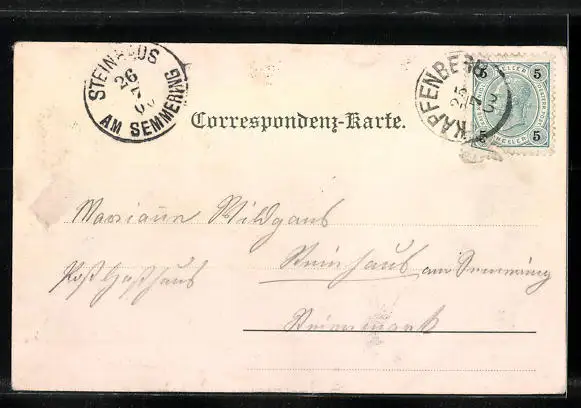 STEINHAUS
26
7
AM SEMMERING
KAPFENBERG
25
7
5 5
5 5
HELLER
Correspondenz-Karte.
Mariann Wildgans
Steinhaus am Semmering
Post Gasthaus
Steiermark